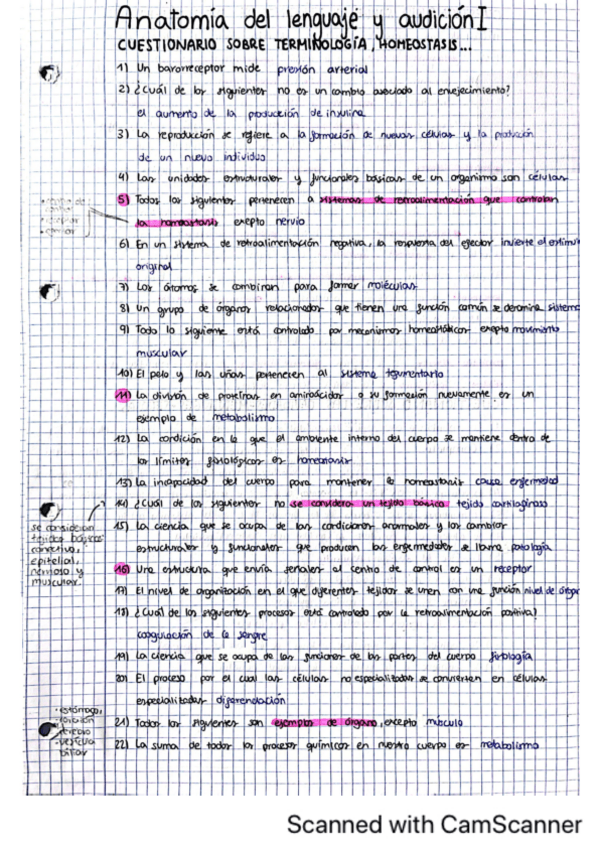 Anatomía del lenguaje y audición I
CUESTIONARIO SOBRE TERMINOLOGÍA, HOMEOSTASIS...
1) Un barorreceptor mide presión arterial
2) ¿Cuál de los siguientes no es un cambio asociado al envejecimiento?
el aumento de la producción de insulina
3) La reproducción se refiere a la formación de nuevas células y la producción
de un nuevo individuo
4) Las unidades estructurales y funcionales básicas de un organismo son células
5) Todos los siguientes pertenecen a sistemas de retroalimentación que controlan
la homeostasis excepto nervio
6) En un sistema de retroalimentación negativa, la respuesta del efector invierte el estímulo
original
7) Los átomos se combinan para formar moléculas
8) Un grupo de órganos relacionados que tienen una función común se denomina sistema
9) Todo lo siguiente está controlado por mecanismos homeostáticos excepto movimiento
muscular
10) El pelo y las uñas pertenecen al sistema tegumentario
11) La división de proteínas en aminoácidos o su formación nuevamente es un
ejemplo de metabolismo
12) La condición en la que el ambiente interno del cuerpo se mantiene dentro de
los límites fisiológicos es homeostasis
13) La incapacidad del cuerpo para mantener la homeostasis causa enfermedad
14) ¿Cuál de los siguientes no se considera un tejido básico? tejido cartilaginoso
se consideran
tejidos básicos
conectivo,
epitelial,
nervioso y
muscular.
15) La ciencia que se ocupa de las condiciones anormales y los cambios
estructurales y funcionales que producen las enfermedades se llama patología
16) Una estructura que envía señales al centro de control es un receptor
17) El nivel de organización en el que diferentes tejidos se unen con una función nivel de órgano
18) ¿Cuál de los siguientes procesos está controlado por la retroalimentación positiva?
coagulación de la sangre
19) La ciencia que se ocupa de las funciones de las partes del cuerpo fisiología
20) El proceso por el cual las células no especializadas se convierten en células
especializadas diferenciación
21) Todos los siguientes son ejemplos de órgano, excepto músculo
·estómago,
·corazón
·vesícula
biliar
22) La suma de todos los procesos químicos en nuestro cuerpo es metabolismo
Scanned with CamScanner